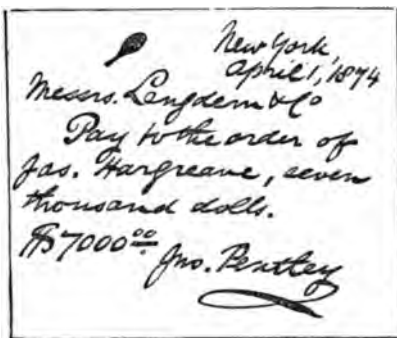 New York,
April 1, 1874
Messrs. Langdern & Co
Pay to the order of
Jas. Hargreave, seven
thousand dolls.
$7000 00/
Jno. Pentley